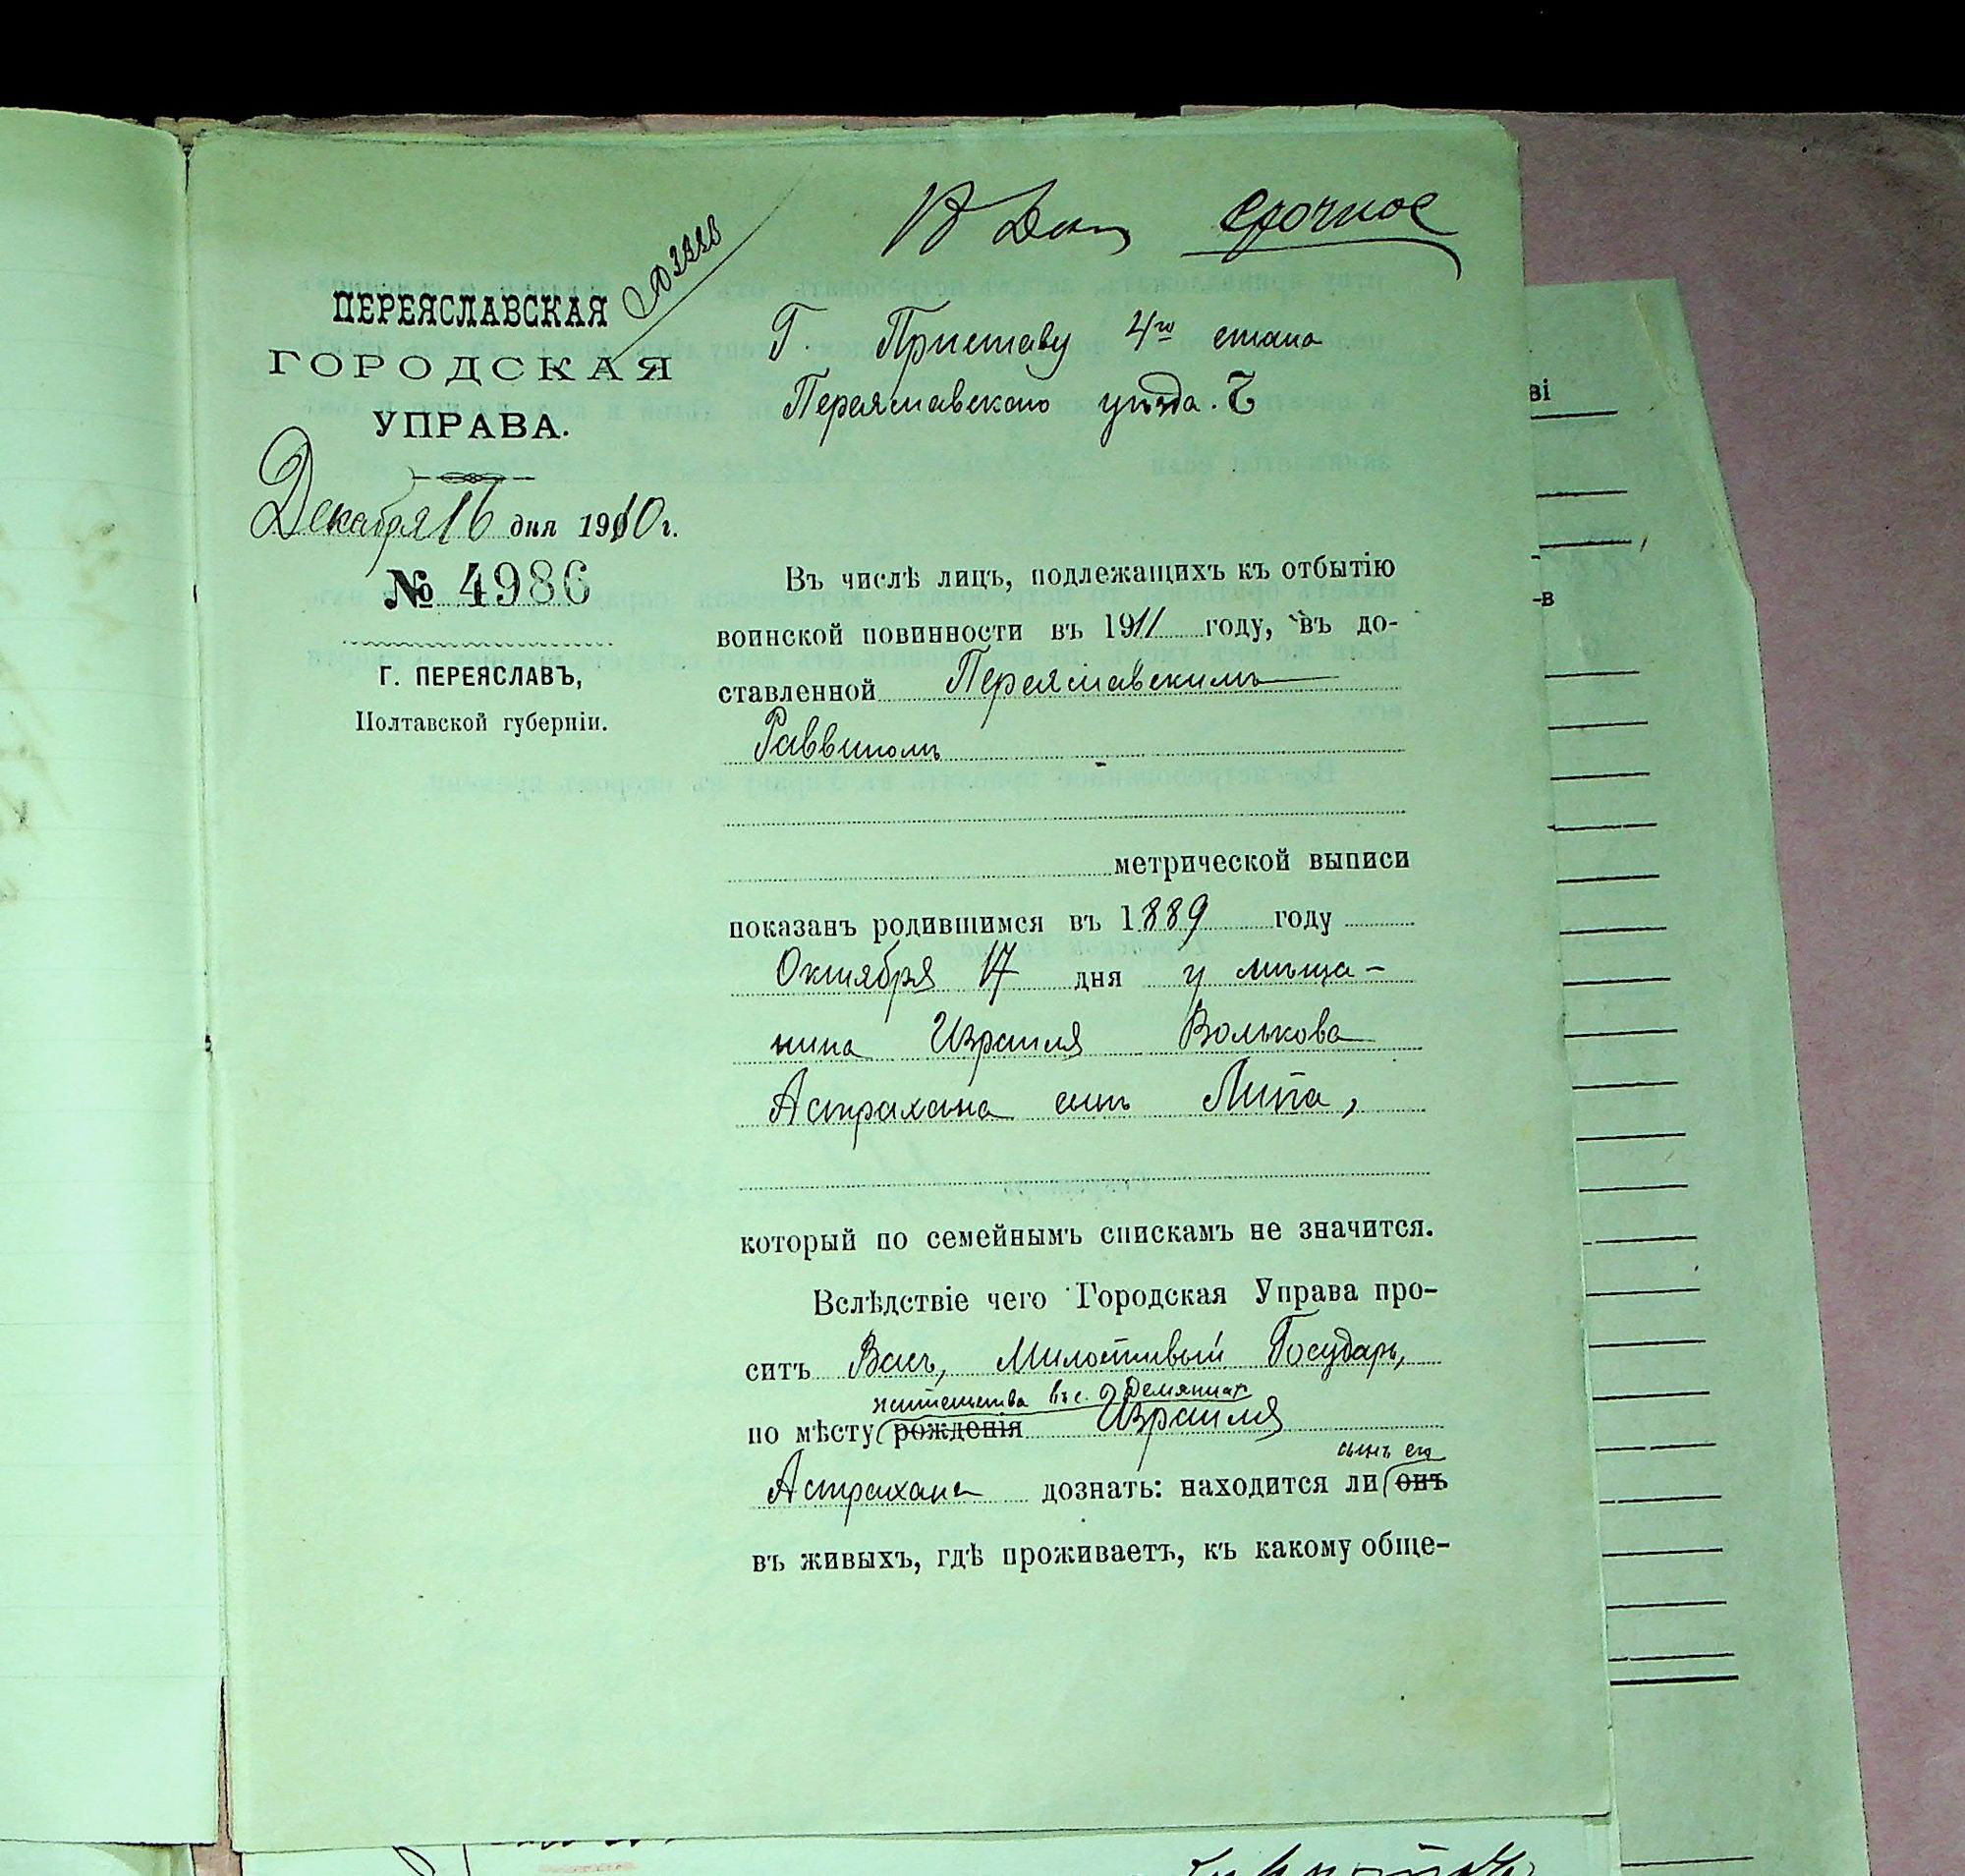 срочное
ПЕРЕЯСЛАВСКАЯ
ГОРОДСКАЯ
УПРАВА.
Декабря 16 дня 1910 г.
№ 4986
Г. ПЕРЕЯСЛАВЪ,
Полтавской губерніи.
Г. Приставу 4го стана
Переяславского уѣзда.
Въ числѣ лицъ, подлежащихъ къ отбытію
воинской повинности въ 1911 году, въ до-
ставленной Переяславскимъ
Раввиномъ
метрической выписи
показанъ родившимся въ 1889 году
Октября 17 дня у мѣща-
нина Израиля Волькова
Астрахана сынъ Липа,
который по семейнымъ спискамъ не значится.
Вслѣдствіе чего Городская Управа про-
ситъ Васъ, Милостивый Государь,
жительства въ с. Демянцах
по мѣсту рожденія Израиля
сынъ его
Астрахана дознать: находится ли онъ
въ живыхъ, гдѣ проживаетъ, къ какому обще-
ві
-в